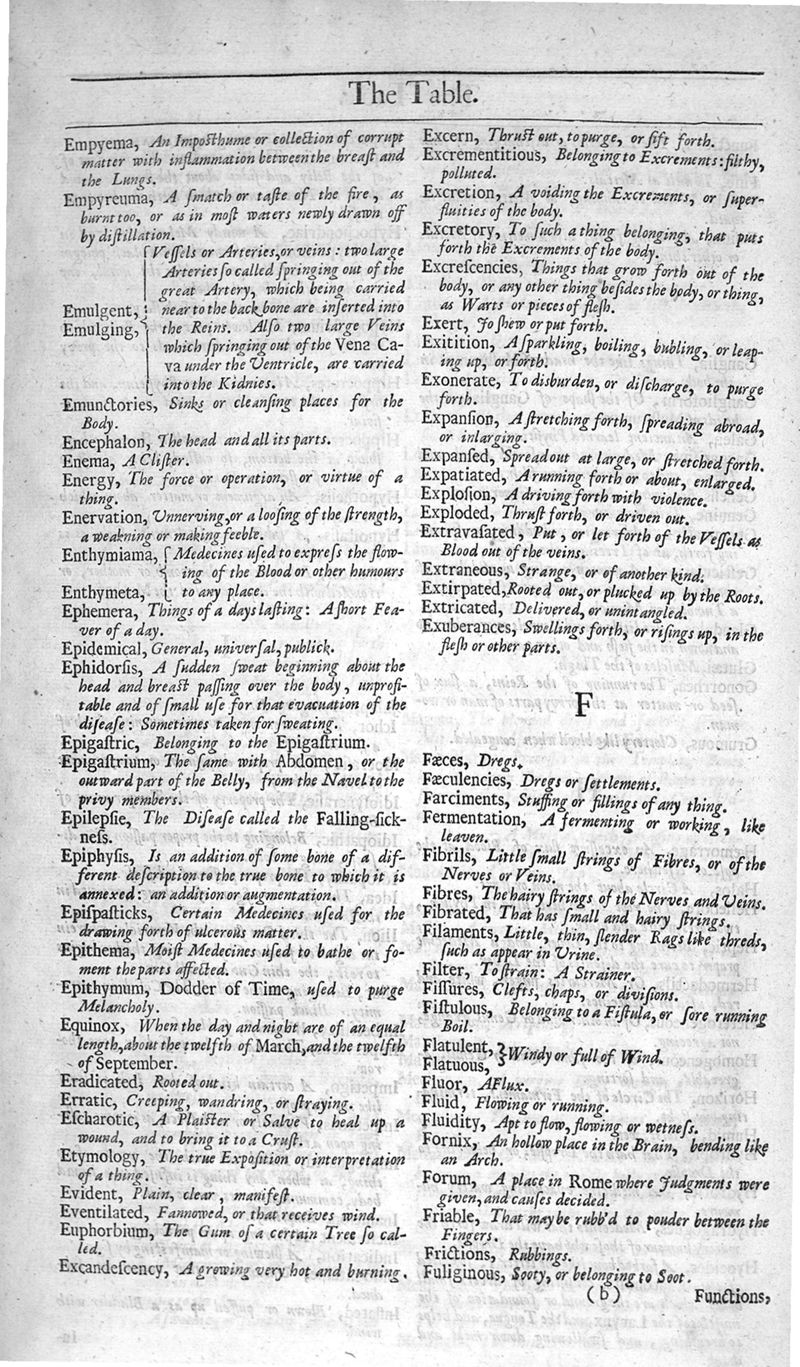 The Table.
Empyema, An Imposthume or collection of corrupt
matter with inflammation between the breaſt and
the Lungs.
Empyreuma, A ſmatch or taſte of the fire, as
burnt too, or as in moſt waters newly drawn off
by diſtillation.
Veſſels or Arteries, or veins: two large
Arteries ſo called ſpringing out of the
great Artery, which being carried
Emulgent, near to the back bone are inſerted into
Emulging, the Reins. Alſo two large Veins
which ſpringing out of the Vena Ca-
va under the Ventricle, are carried
into the Kidnies.
Emunctories, Sinks or cleanſing places for the
Body.
Encephalon, The head and all its parts.
Enema, A Cliſter.
Energy, The force or operation, or virtue of a
thing.
Enervation, Unnerving, or a looſing of the ſtrength,
a weakning or making feeble.
Enthymiama, Medecines uſed to expreſs the flow-
ing of the Blood or other humours
Enthymeta, to any place.
Ephemera, Things of a days laſting: A ſhort Fea-
ver of a day.
Epidemical, General, univerſal, publick.
Ephidorſis, A ſudden ſweat beginning about the
head and breaſt paſſing over the body, unprofi-
table and of ſmall uſe for that evacuation of the
diſeaſe: Sometimes taken for ſweating.
Epigaſtric, Belonging to the Epigaſtrium.
Epigaſtrium, The ſame with Abdomen, or the
outward part of the Belly, from the Navel to the
privy members.
Epilepſie, The Diſeaſe called the Falling-ſick-
neſs.
Epiphyſis, Is an addition of ſome bone of a dif-
ferent deſcription to the true bone to which it is
annexed: an addition or augmentation.
Epiſpaſticks, Certain Medecines uſed for the
drawing forth of ulcerous matter.
Epithema, Moiſt Medecines uſed to bathe or fo-
ment the parts affected.
Epithymum, Dodder of Time, uſed to purge
Melancholy.
Equinox, When the day and night are of an equal
length, about the twelfth of March, and the twelfth
of September.
Eradicated, Rooted out.
Erratic, Creeping, wandring, or ſtraying.
Eſcharotic, A Plaiſter or Salve to heal up a
wound, and to bring it to a Cruſt.
Etymology, The true Expoſition or interpretation
of a thing.
Evident, Plain, clear, manifeſt.
Eventilated, Fannowed, or that receives wind.
Euphorbium, The Gum of a certain Tree ſo cal-
led.
Excandeſcency, A growing very hot and burning.
Excern, Thruſt out, to purge, or ſift forth.
Excrementitious, Belonging to Excrements: filthy,
polluted.
Excretion, A voiding the Excrements, or ſuper-
fluities of the body.
Excretory, To ſuch a thing belonging, that puts
forth the Excrements of the body.
Excreſcencies, Things that grow forth out of the
body, or any other thing beſides the body, or thing,
as Warts or pieces of fleſh.
Exert, To ſhew or put forth.
Exitition, A ſparkling, boiling, bubling, or leap-
ing up, or forth.
Exonerate, To disburden, or diſcharge, to purge
forth.
Expanſion, A ſtretching forth, ſpreading abroad,
or inlarging.
Expanſed, Spread out at large, or ſtretched forth.
Expatiated, A running forth or about, enlarged.
Exploſion, A driving forth with violence.
Exploded, Thruſt forth, or driven out.
Extravaſated, Put, or let forth of the Veſſels as
Blood out of the veins.
Extraneous, Strange, or of another kind.
Extirpated, Rooted out, or plucked up by the Roots.
Extricated, Delivered, or unintangled.
Exuberances, Swellings forth, or riſings up, in the
fleſh or other parts.
F
Fæces, Dregs.
Fæculencies, Dregs or ſettlements.
Farciments, Stuffing or fillings of any thing.
Fermentation, A fermenting or working, like
leaven.
Fibrils, Little ſmall ſtrings of Fibres, or of the
Nerves or Veins.
Fibres, The hairy ſtrings of the Nerves and Veins.
Fibrated, That has ſmall and hairy ſtrings.
Filaments, Little, thin, ſlender Rags like threds,
ſuch as appear in Urine.
Filter, To ſtrain: A Strainer.
Fiſſures, Clefts, chaps, or diviſions.
Fiſtulous, Belonging to a Fiſtula, or ſore running
Boil.
Flatulent, Windy or full of Wind.
Flatuous,
Fluor, A Flux.
Fluid, Flowing or running.
Fluidity, Apt to flow, flowing or wetneſs.
Fornix, An hollow place in the Brain, bending like
an Arch.
Forum, A place in Rome where Judgments were
given, and cauſes decided.
Friable, That may be rubb'd to pouder between the
Fingers.
Frictions, Rubbings.
Fuliginous, Sooty, or belonging to Soot.
(b) Functions,